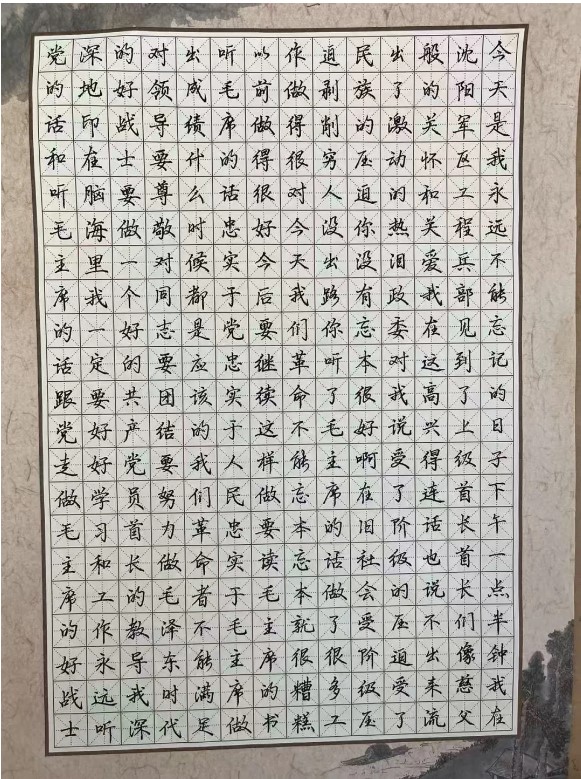 今天是我永远不能忘记的日子下午一点半钟我在
沈阳军区工程兵部见到了上级首长首长们像慈父
般的关怀和关爱我在这高兴得连话也说不出来流
出了激动的热泪政委对我说受了阶级的压迫受了
民族的压迫你没有忘本很好啊在旧社会受阶级压
迫剥削穷人没出路你听了毛主席的话做了很多工
作做得很对今天我们革命不能忘本忘本就很糟糕
以前做得很好今后要继续这样做要读毛主席的书
听毛席的话忠实于党忠实于人民忠实于毛主席做
出成绩什么时候都是应该的我们革命者不能满足
对领导要尊敬对同志要团结要努力做毛泽东时代
的好战士要做一个好的共产党员首长的教导我深
深地印在脑海里我一定要好好学习和工作永远听
党的话和听毛主席的话跟党走做毛主席的好战士